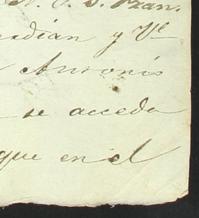 N. P. S. Fran.
dian y Vᵉ
Antonio
se acceda
que en el